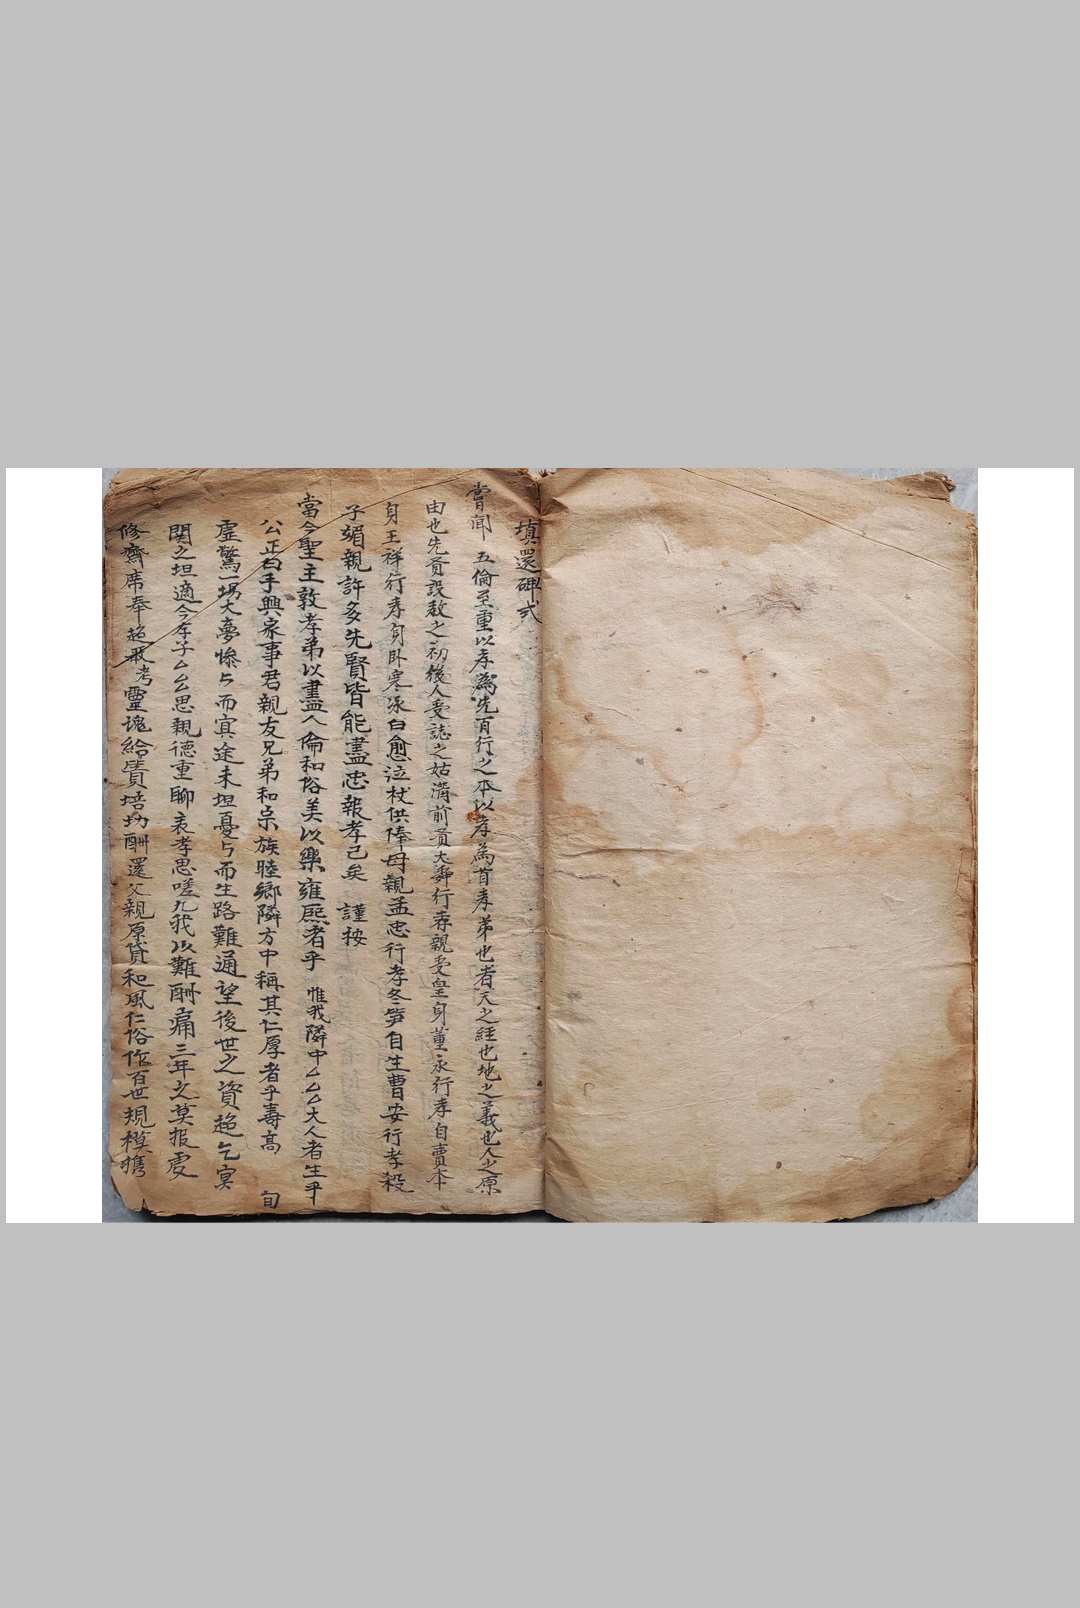 填還碑式
嘗聞 五倫至重以孝為先百行之本以孝為首孝弟也者天之經也地之義也人之原
由也先賢設教之初後人受誌之姑溝前賢大舜行孝親受皇身董永行孝自賣本
身王祥行孝身卧寒冰白愈泣杖供俸母親孟忠行孝冬笋自生曹安行孝殺
子媚親許多先賢皆能盡忠報孝己矣 謹按
當今聖主敦孝弟以盡人倫和俗美以樂雍熙者乎 惟我隣中厶厶厶大人者生乎
公正白手興家事君親友兄弟和宗族睦鄉隣方中稱其仁厚者乎壽高 旬
虛驚一場大夢慘与而寞途未坦憂与而生路難通望後世之資超乞冥
関之坦適今孝子厶厶思親德重聊表孝思嗟凡我以難酬痛三年之莫报虔
修齋席奉超故考靈魂給賫塔塲酬還父親原貸和風仁俗作百世規模擕